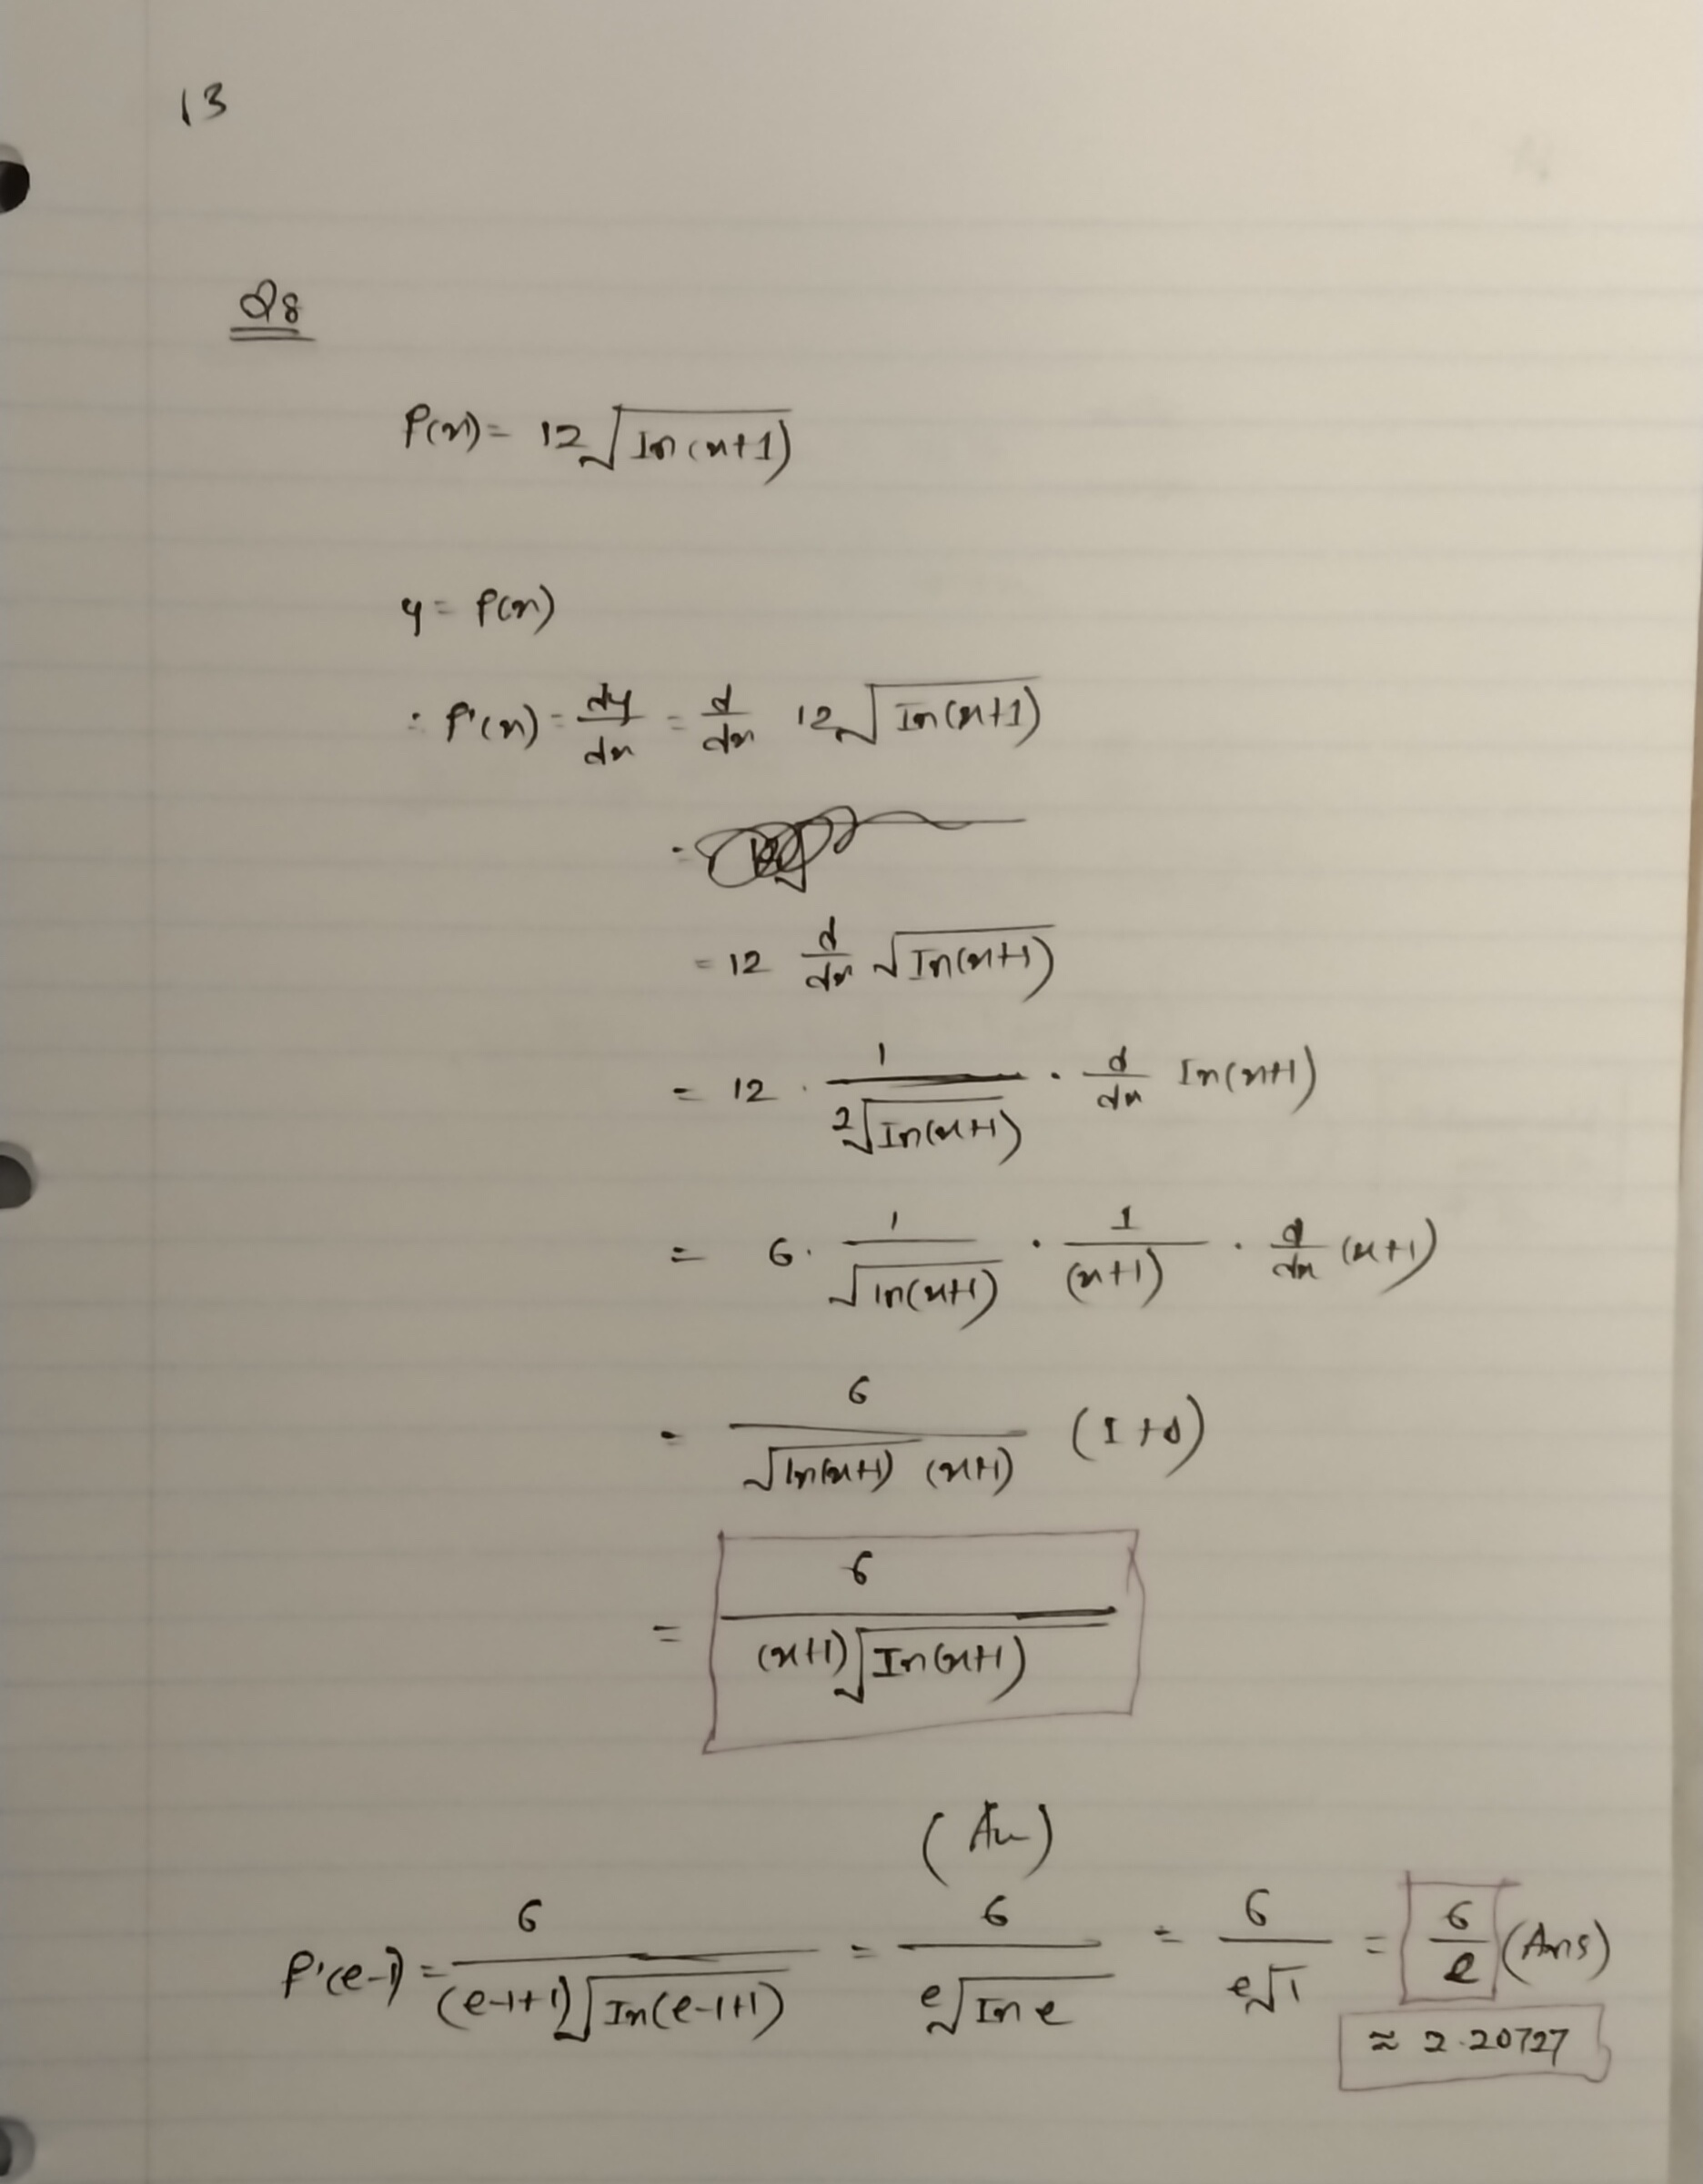 13
Q8
f(x) = 12√In(x+1)
y = f(x)
∴ f'(x) = dy/dx = d/dx 12√In(x+1)
=
= 12 d/dx √In(x+1)
= 12 · 1/(2√In(x+1)) · d/dx In(x+1)
= 6 · 1/√ln(x+1) · 1/(x+1) · d/dx (x+1)
= 6/(√ln(x+1) (x+1)) (1+0)
= 6/((x+1)√In(x+1))
(An)
f'(e-1) = 6/((e-1+1)√In(e-1+1)) = 6/(e√In e) = 6/(e√1) = 6/e (Ans)
≈ 2.20727